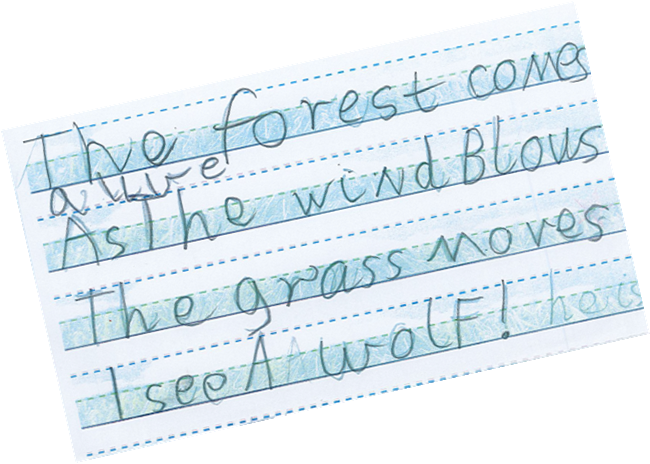 The forest comes
alive
AsThe wind Blows
The grass moves
I see A wolF! he is